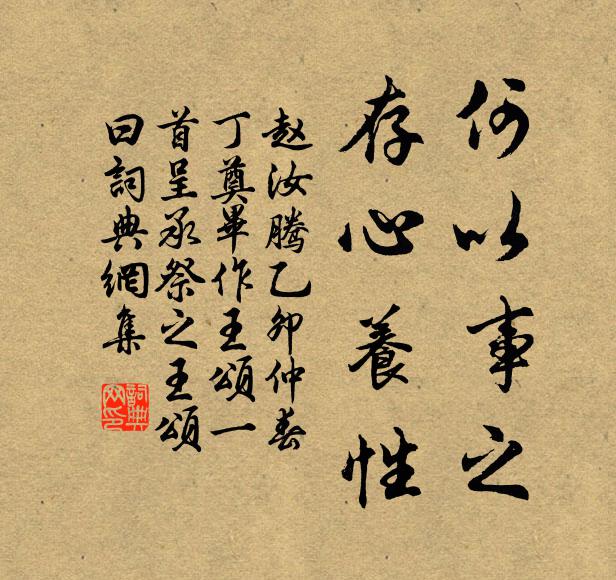 何以事之
存心養性
赵汝腾乙卯仲春
丁奠畢作王頌一
首呈承祭之王頌
曰詞典網集
詞典
网印